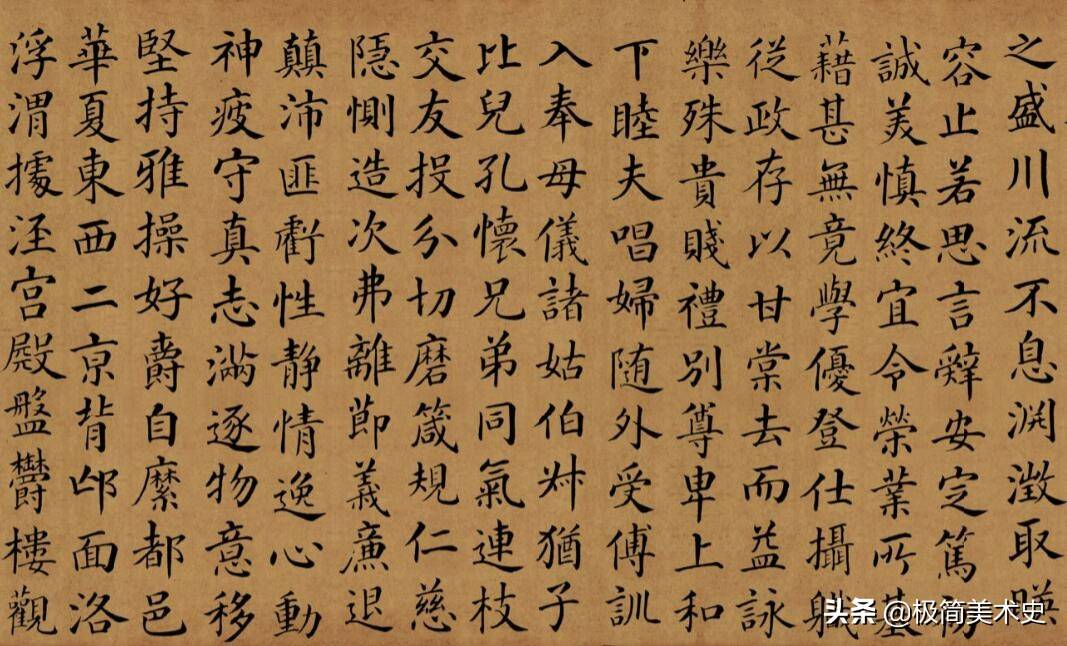 之盛川流不息渊澂取暎
容止若思言辤安定篤初
誠美慎終宜令榮業所基
藉甚無竟學優登仕攝職
從政存以甘棠去而益詠
樂殊貴賤禮別尊卑上和
下睦夫唱婦随外受傅訓
入奉母儀諸姑伯叔猶子
比兒孔懷兄弟同氣連枝
交友投分切磨箴規仁慈
隱惻造次弗離節義廉退
顛沛匪虧性静情逸心動
神疲守真志滿逐物意移
堅持雅操好爵自縻都邑
華夏東西二京背邙面洛
浮渭據涇宮殿盤鬱樓觀
头条 @极简美术史